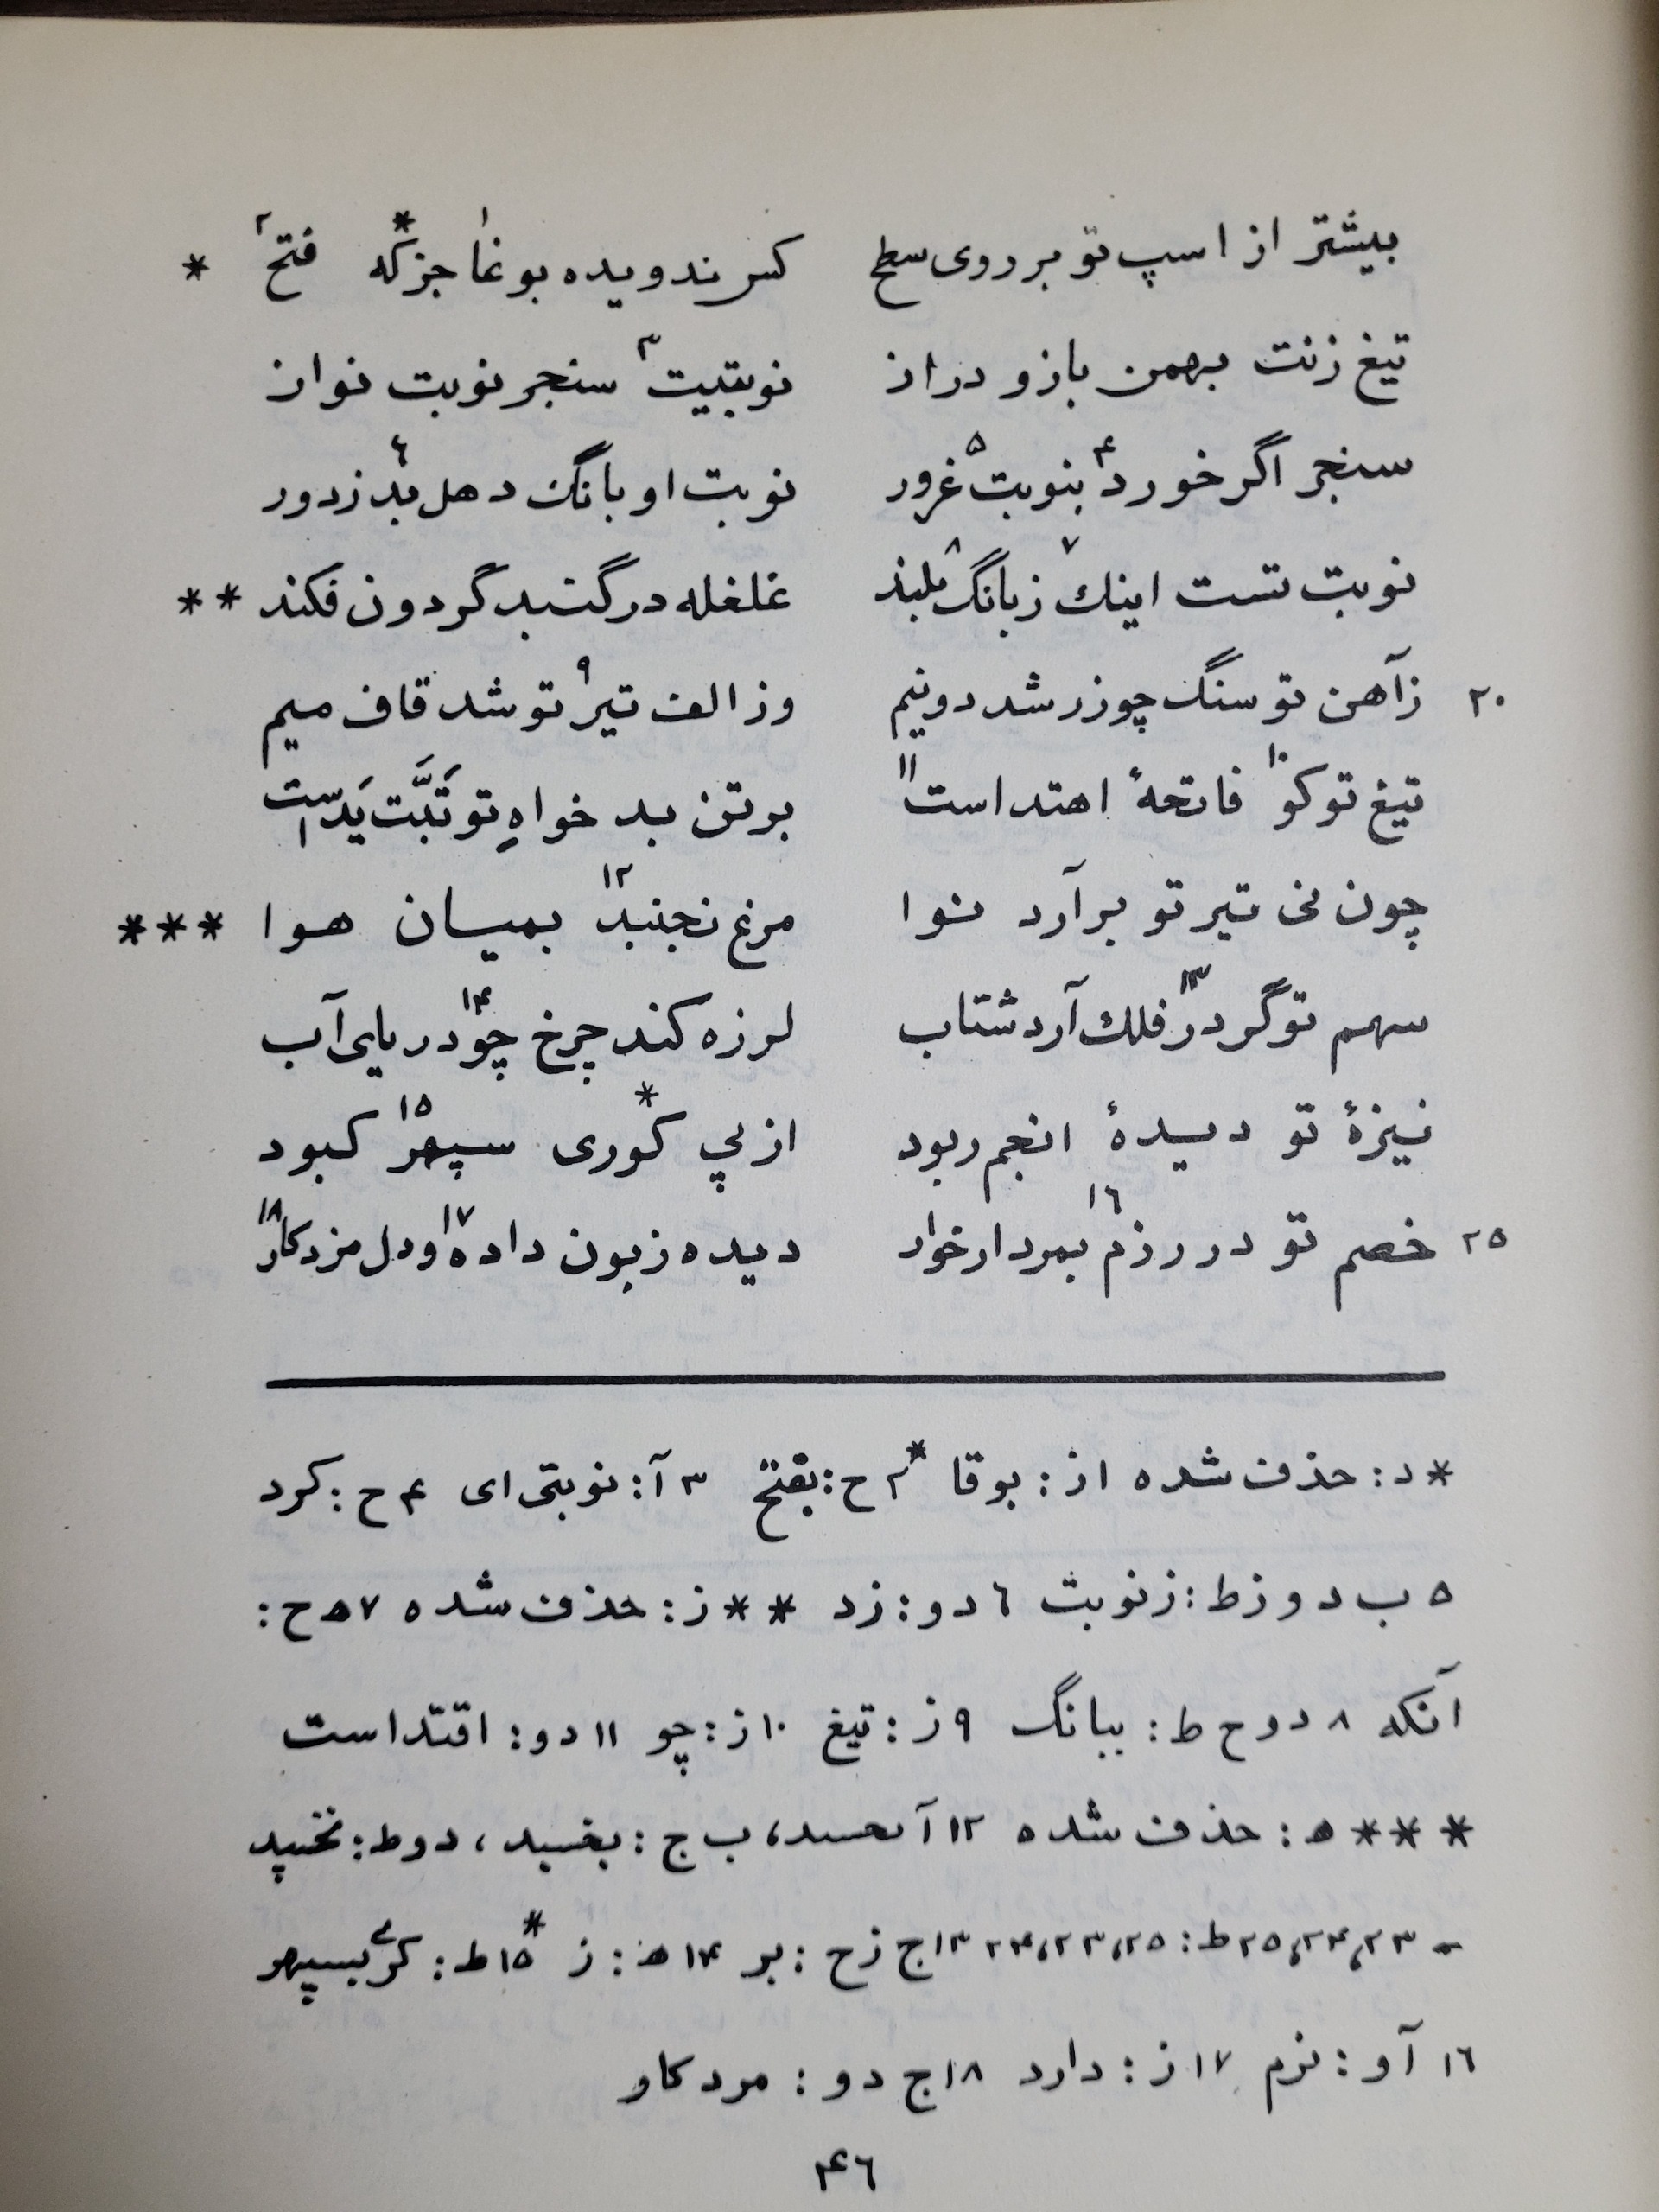 بیشتر از اسپ تو بر روی سطح کس ندویده بوغا۱ جز که* فتح۲ *
تیغ زنت بهمن بازو دراز نوبتیت۳ سنجر نوبت نواز
سنجر اگر خورد۴ بنوبت۵ غرور نوبت او بانگ دهل بد۶ ز دور
نوبت تست اینك۷ ز بانگ۸ بلند غلغله در گنبد گردون فکند **
۲۰ زآهن تو سنگ چو زر شد دونیم وز الف تیر۹ تو شد قاف میم
تیغ تو کو۱۰ فاتحهٔ اهتداست۱۱ بر تن بد خواهِ تو تَبَّت یَداست
چون نی تیر تو برآرد نوا مرغ نجنبد۱۲ بمیان هوا ***
سهم تو گر در۱۳ فلك آرد شتاب لرزه کند چرخ چو۱۴ دریای آب
نیزهٔ تو دیدهٔ انجم ربود از پی کوری* سپهر۱۵ کبود
۲۵ خصم تو در رزم۱۶ بمردار خوار دیده زبون داده۱۷ و دل مزد کار۱۸
* د: حذف شده از: بوقا *۲ ح: بفتح ۳ آ: نوبتی ای ۴ ح: کرد
۵ ب د و ز ط: ز نوبت ۶ د و: زد ** ز: حذف شده ۷ ه ح:
آنکه ۸ د و ح ط: ببانگ ۹ ز: تیغ ۱۰ ز: چو ۱۱ د و: اقتداست
*** ه: حذف شده ۱۲ آ ، ب ج: بخسبد، د و ط: نخسپد
- ۲۳، ۲۴، ۲۵ ط: ۲۵، ۲۳، ۲۴ ۱۳ ج ز ح: بر ۱۴ ه: ز *۱۵ ط: بسپهر
۱۶ آ و: نرم ۱۷ ز: دارد ۱۸ ج د و: مرد کار
۴۶